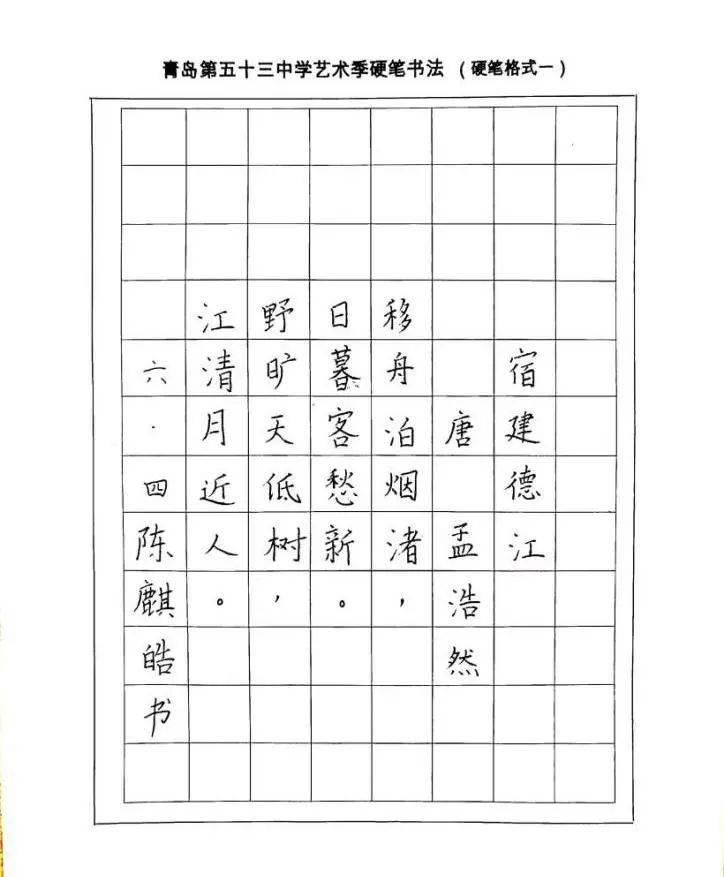 青岛第五十三中学艺术季硬笔书法 （硬笔格式一）
宿建德江
唐 孟浩然
移舟泊烟渚，
日暮客愁新。
野旷天低树，
江清月近人。
六·四陈麒皓书